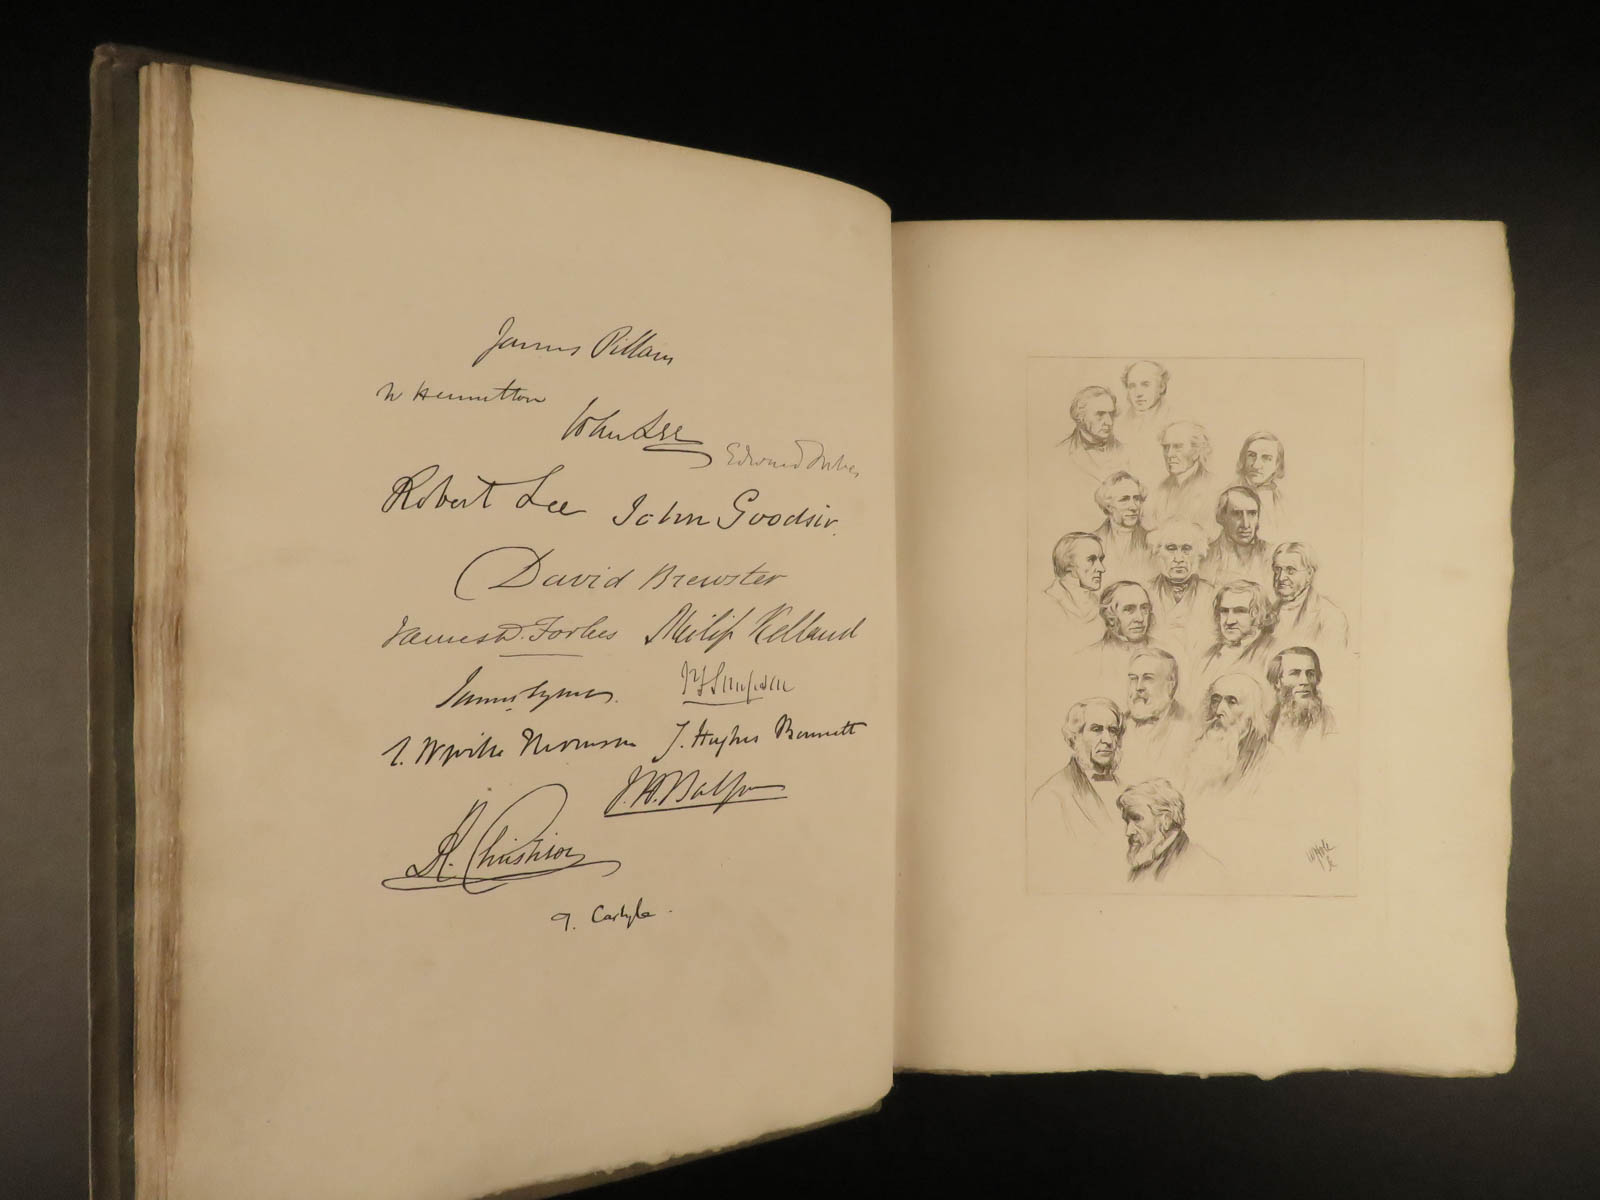 James Pillans
W Hamilton
John Lee
Edward Forbes
Robert Lee John Goodsir.
David Brewster
James D. Forbes Philip Kelland
James Syme. J Y Simpson
C. Wyville Thomson J. Hughes Bennett
J. H. Balfour
R. Christison
T. Carlyle.
W Hole